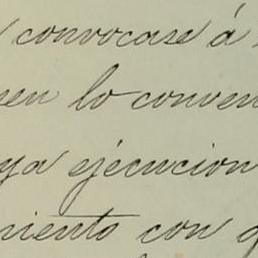 convocase á
sen lo conven
ya ejecucion
miento con g